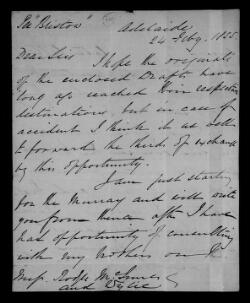 Per "Bruston" Adelaide
24 Feby. 1855
Dear Sirs
I hope the originals
of the enclosed Drafts have
long ago reached their respective
destinations, but in case of
accident I think it as well
to forward the thirds of exchange
by this opportunity.
I am just starting
for the Murray and will write
you from thence after I have
had opportunity of consulting
with my brothers on
Messrs
and